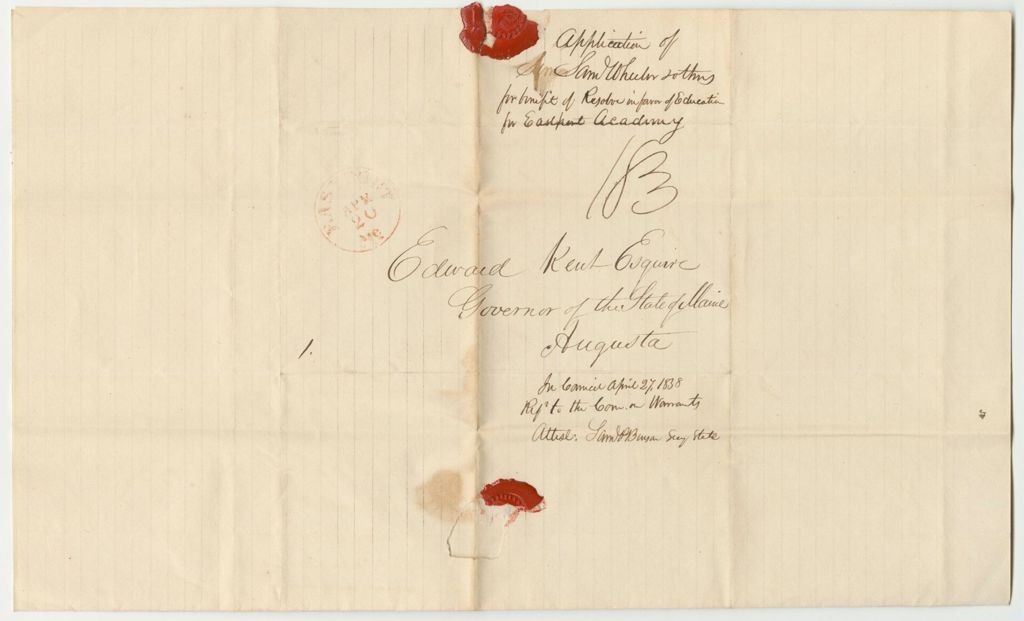 Application of
Saml Wheeler & others
for benefit of Resolve in favor of Education
for Eastport Academy
183
EASTPORT
APR
20
Me
Edward Kent Esquire
Governor of the State of Maine
Augusta
1.
In Council April 27, 1838
Refd to the Com. on Warrants
Attest: Saml P Benson Secy State